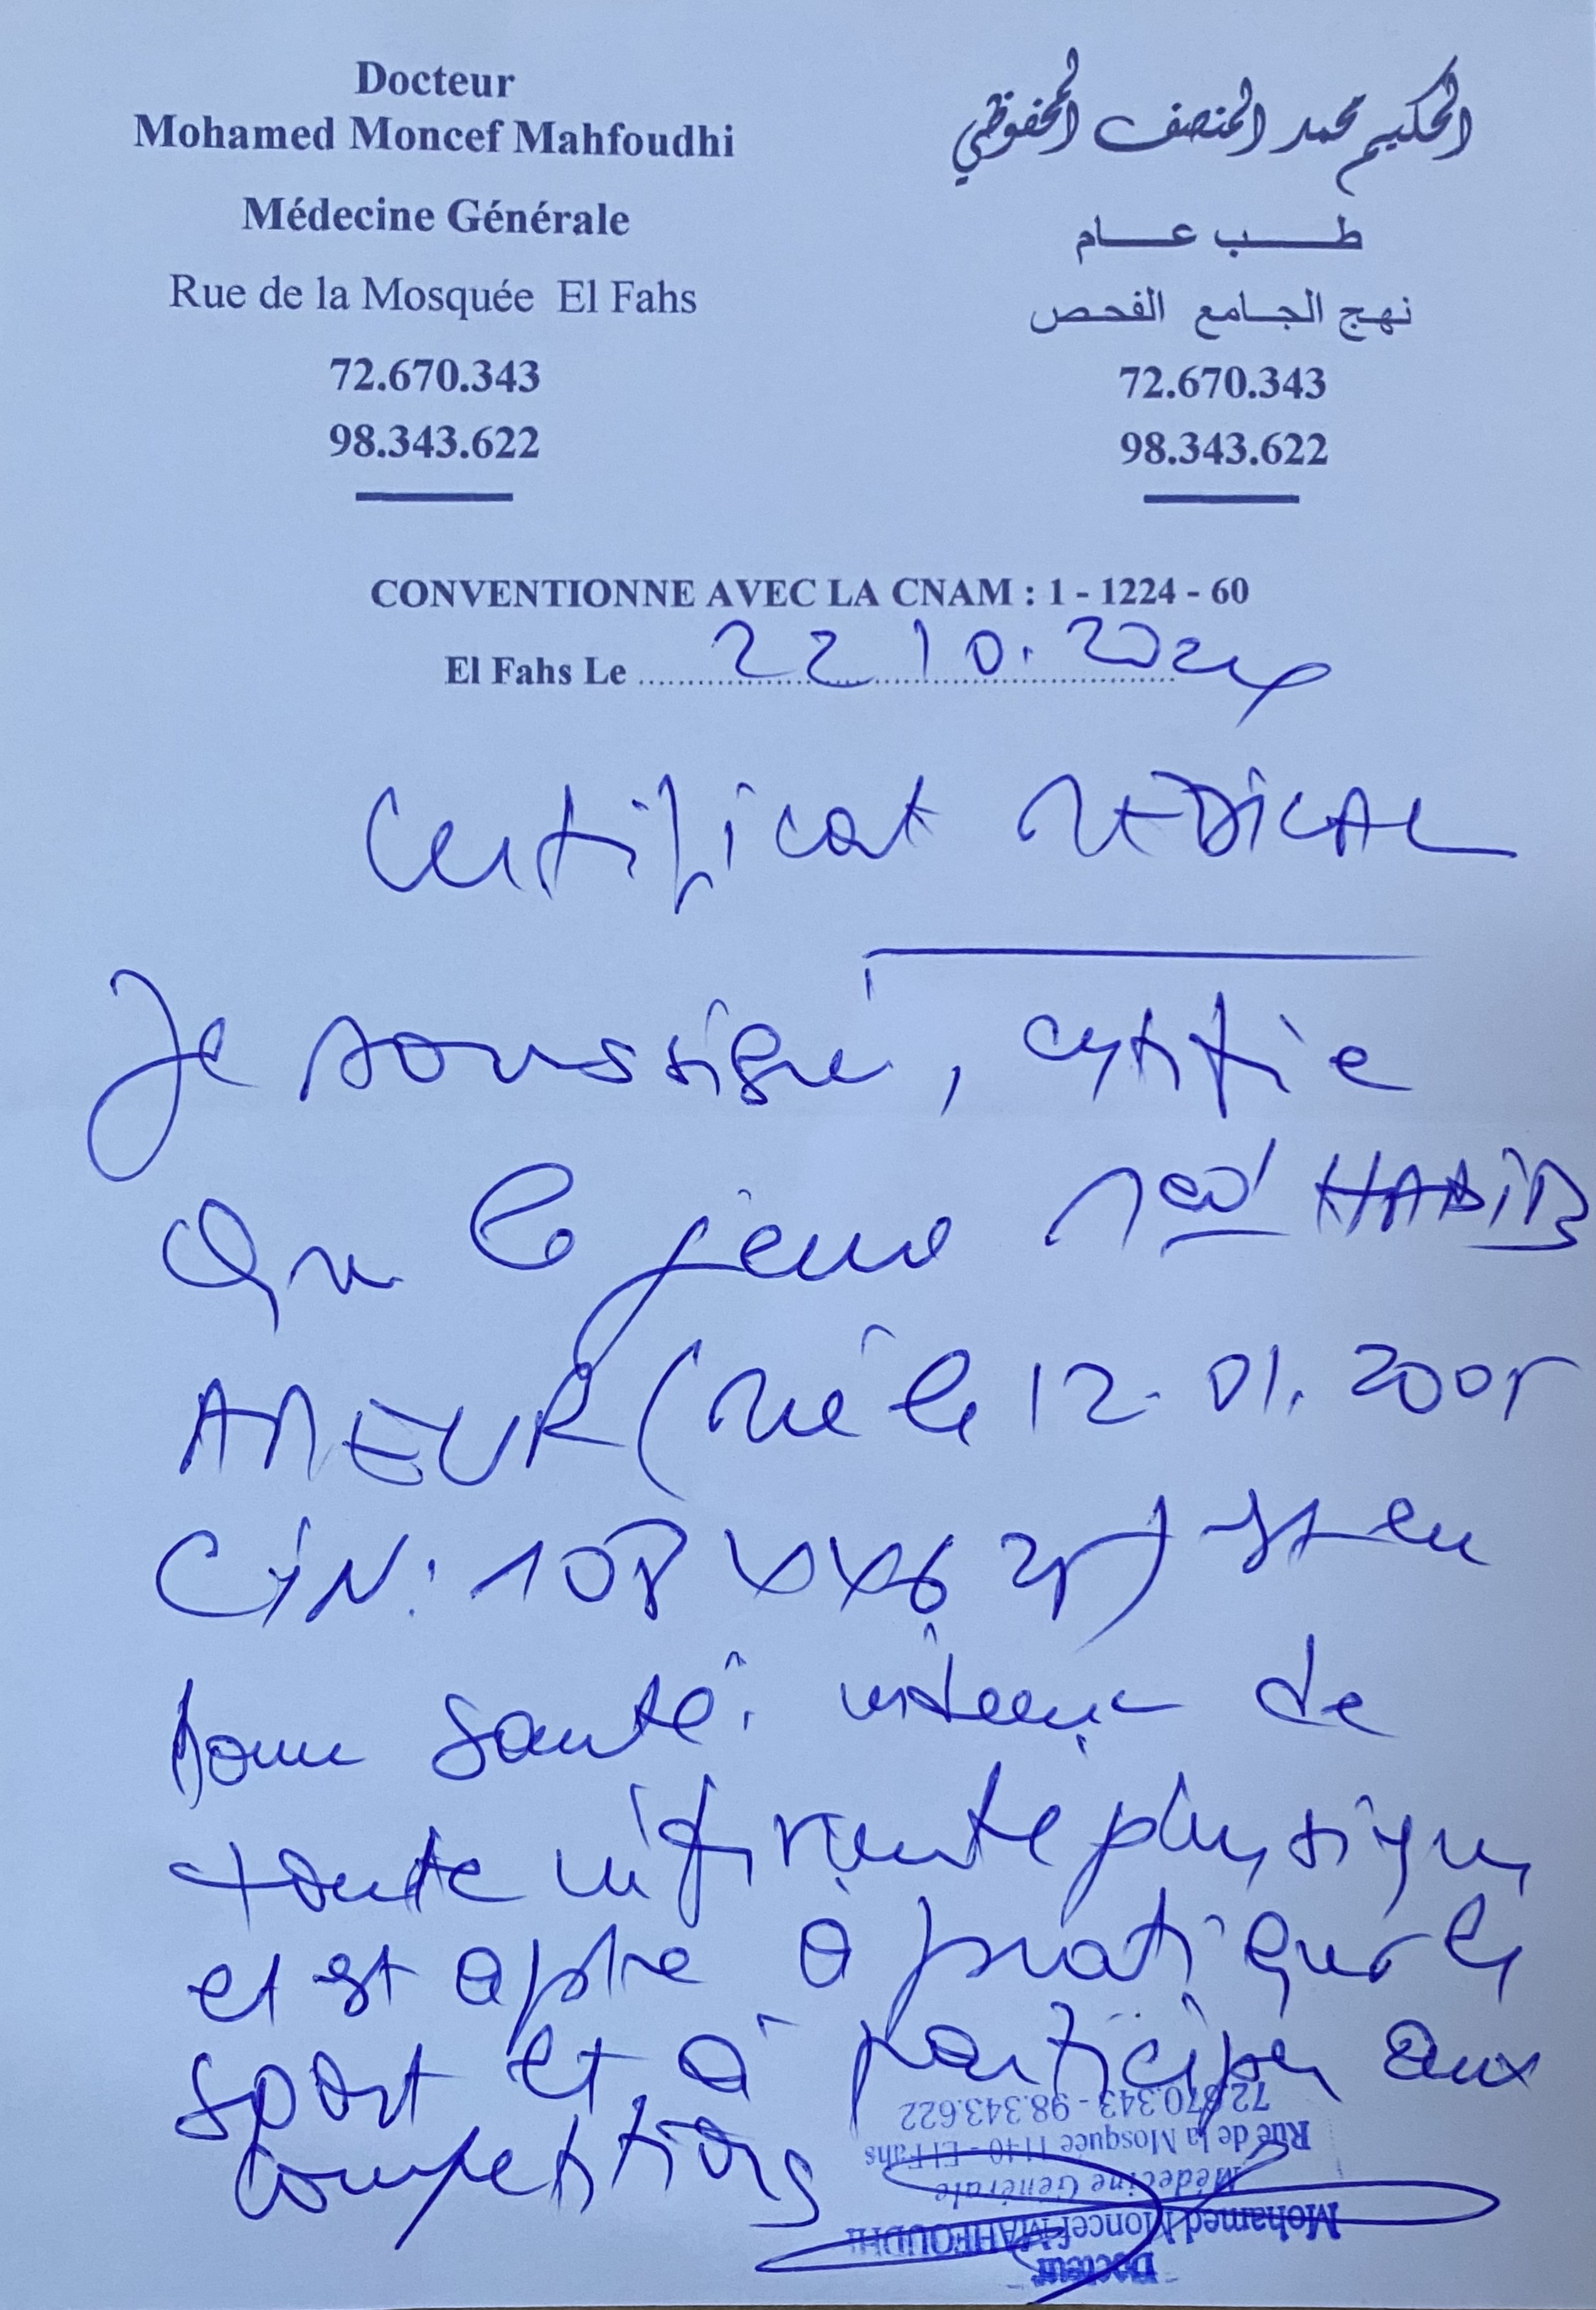 Docteur
Mohamed Moncef Mahfoudhi
Médecine Générale
Rue de la Mosquée El Fahs
72.670.343
98.343.622
الحكيم محمد المنصف المحفوظي
طب عام
نهج الجامع الفحص
72.670.343
98.343.622
CONVENTIONNE AVEC LA CNAM : 1 - 1224 - 60
El Fahs Le 22 10. 2024
Certificat MEDICAL
Je soussigné, certifie
Que le jeune Med HABIB
AMEUR (Né le 12. 01. 2005
CIN: ) est en
bonne santé. indemne de
toute infirmité physique
et est apte à pratiquer le
sport et à participer aux
competitions
Docteur
Mohamed Moncef MAHFOUDHI
Médecine Générale
Rue de la Mosquée 1140 - El Fahs
72.670.343 - 98.343.622